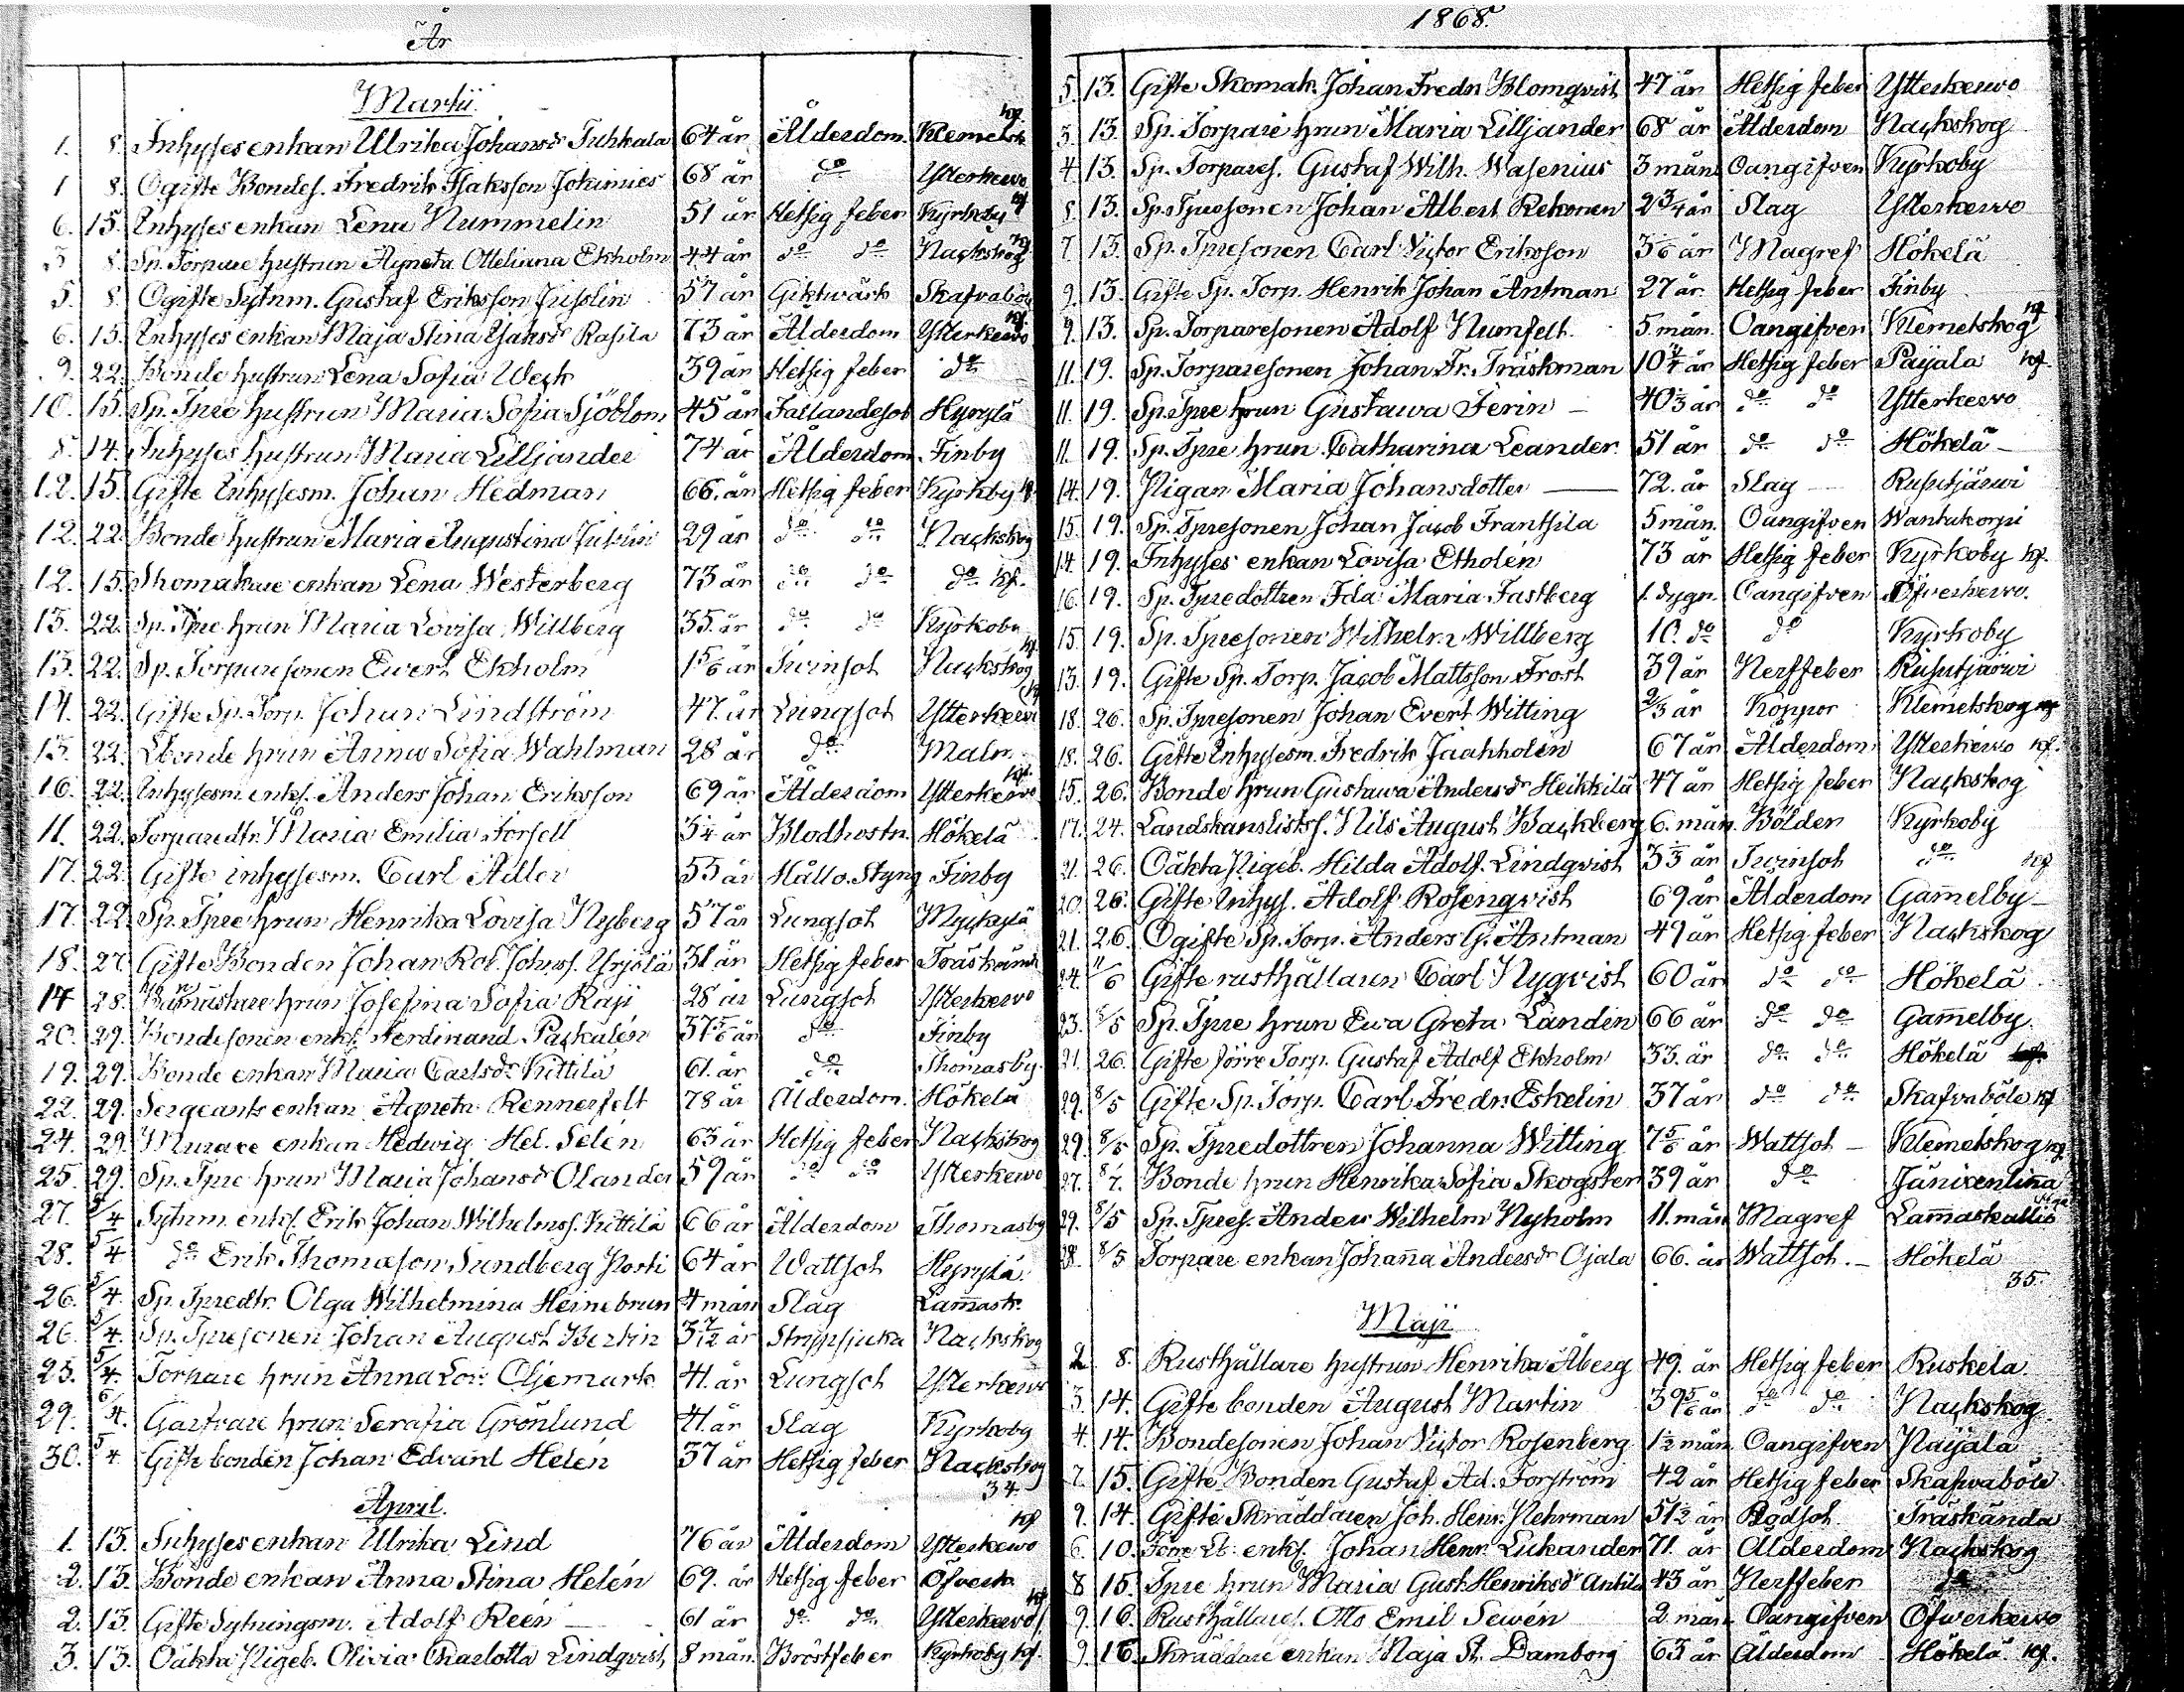 År
Martii
1. 8. Inhyses enkan Ulrika Johansdr Tuhkala 64 år Ålderdom. Klemetsk. kf.
1 8. Ogifte Bondes. Fredrik Isaksson Jokimies 68 år do Ytterkervo
6. 15. Inhyses enkan Lena Nummelin 51 år Hetsig feber Kyrkoby kf
3 8. Sp. Torpare hustrun Agneta Otteliana Ekholm 44 år do do Nackskog kf
5. 8. Ogifte Sytnm. Gustaf Eriksson Jusslin 57 år Giktvärk Skafvaböle
6. 15. Inhyses enkan Maja Stina Isaksdr Rasila 73 år Ålderdom Ytterkervo kf
9. 22. Bonde hustrun Lena Sofia Weck 39 år Hetsig feber do
10. 15. Sp. Tpre hustrun Maria Sofia Sjöblom 45 år Fallandesot Hyrylä
8. 14. Inhyses hustrun Maria Lilljander 74 år Ålderdom Finby
12. 15. Gifte Inhysesm. Johan Hedman 66. år Hetsig feber Kyrkby kf.
12. 22. Bonde hustrun Maria Augustina 29 år do do Nackskog
12. 15. Skomakare enkan Lena Westerberg 73 år do do do kf.
13. 22. Sp. Tpre hrun Maria Lovisa Willberg 35. år do do Kyrkoby
13. 22. Sp. Torparesonen Evert Ekholm 1 5/6 år Tvinsot Nackskog kf
14. 22. Gifte Sp. Torp. Johan Lindström 47. år Lungsot Ytterkervo kf
15. 22. Lbonde hrun Anna Sofia Wahlman 28 år do Malm
16. 22. Inhysesm. enkl. Anders Johan Eriksson 69 år Ålderdom Ytterkervo kf.
11. 22. Torparedtr. Maria Emilia Forsell 3 1/4 år Blodhostn. Hökelä
17. 22. Gifte inhysesm. Carl Adler 55 år Håll o. Styng Finby
17. 22. Sp. Tpre hrun Henrika Lovisa Nyberg 57 år Lungsot Myckylä
18. 27. Gifte Bonden Johan Rob. Johns. Yrjölä 31 år Hetsig feber Träskända
14 28. hrun Josefina Sofia Raji 28 år Lungsot Ytterkervo
20. 29. Bondesonen enkl. Ferdinand Paskalén 37 5/6 år do Finby
19. 29. Bonde enkan Maria Carlsdr Kittilä 61. år do Thomasby.
22. 29. Sergeants enkan Agneta Rennerfelt 78 år Ålderdom. Hökelä
24. 29. Murare enkan Hedwig Hel. Selén 63 år Hetsig feber Nackskog
25. 29. Sp. Tpre hrun Maria Johansdr Olander 59 år do do Ytterkervo
27. 5/4 Sytnm. enkl. Erik Johan Wilhelmss. Kittilä 66 år Ålderdom Thomasby
28. 5/4 do Erik Thomæson Sundberg Porti 64 år Wattsot Hyrylä
26. 5/4. Sp. Tpredtr. Olga Wilhelmina Heinebrun 4 mån Slag Lam̄ask.
26. 5/4. Sp. Tpresonen Johan August Bertin 3 7/12 år Strypsjuka Nackskog
25. 5/4. Torpare hrun Anna Lov. Oljemark 41. år Lungsot Ytterkervo
29. 6/4. Garfvare hrun Serafia Grönlund 41. år Slag Kyrkoby
30. 5/4 Gifte bonden Johan Edvard Helén 37 år Hetsig feber Nackskog
34.
April.
1. 13. Inhyses enkan Ulrika Lind 76 år Ålderdom Ytterkervo kf
2. 13. Bonde enkan Anna Stina Helén 69. år Hetsig feber Öfverk.
2. 13. Gifte Sytningsm. Adolf Reén 61 år do do Ytterkervo kf
3. 13. Oäkta Pigeb. Olivia Charlotta Lindqvist 8 mån. Bröstfeber Kyrkoby kf.
1868.
5. 13. Gifte Skomak. Johan Fredr. Blomqvist 47 år Hetsig feber Ytterkervo
3. 13. Sp. Torpare hrun Maria Lilljander 68 år Ålderdom Nackskog
4. 13. Sp. Torpares. Gustaf Wilh. Wasenius 3 mån Oangifven Kyrkoby
8. 13. Sp. Tpresonen Johan Albert Rekonen 2 3/4 år Slag Ytterkervo
7 13. Sp. Tpresonen Carl Victor Eriksson 3/6 år Magref Hökelä
9. 13. Gifte Sp. Torp. Henrik Johan Antman 27 år. Hetsig feber Finby
9. 13. Sp. Torparesonen Adolf Numfelt. 5. mån. Oangifven Klemetskog kf
11. 19. Sp. Torparesonen Johan Fr. Träskman 10 3/4 år Hetsig feber Paijala kf.
11. 19. Sp. Tpre hrun Gustawa Ferin 40 1/3 år do do Ytterkervo
11. 19. Sp. Tpre hrun Catharina Leander. 51 år do do Hökelä
14. 19. Pigan Maria Johansdotter 72. år Slag Rusutjärwi
15. 19. Sp. Tpresonen Johan Jacob Frantsila 5 mån. Oangifven Wantakorpi
14. 19. Inhyses enkan Lovisa Etholén 73 år Hetsig feber Kyrkoby kf.
16. 19. Sp. Tpredottren Ida Maria Fastberg 1. dygn. Oangifven Öfverkervo.
15. 19. Sp. Tpresonen Wilhelm Willberg 10. do do Kyrkoby
13. 19. Gifte Sp. Torp. Jacob Mattsson Frost 39 år Nerffeber Rusutjärwi
18. 26. Sp. Tpresonen Johan Evert Witting 2/3 år Koppor Klemetskog kf
18. 26. Gifte Inhysesm. Fredrik Jaahholén 67 år Ålderdom Ytterkervo kf.
15. 26. Bonde hrun Gustawa Andersdr Heikkilä 47 år Hetsig feber Nackskog
17. 24. Landskanslists. Nils August Backberg 6. mån. Bölder Kyrkoby
21. 26. Oäkta Pigeb. Hilda Adolf. Lindqvist 3 1/3 år Tvinsot do kf
20. 26. Gifte Inhys. Adolf Rosenqvist 69 år Ålderdom Gam̄elby
21. 26. Ogifte Sp. Torp. Anders G. Antman 49 år Hetsig feber Nackskog
24. 11/6 Gifte rusthållaren Carl Nyqvist 60 år do do Hökelä
23. 8/5 Sp. Tpre hrun Ewa Greta Landén 66 år do do Gam̄elby.
21 26. Gifte förre Torp. Gustaf Adolf Ekholm 33. år do do Hökelä
29. 8/5 Gifte Sp. Torp. Carl Fredr. Eskelin 37 år do do Skafvaböle kf
29. 8/5 Sp. Tpredottren Johanna Witting 7 5/6 år Wattsot Klemetskog kf
27. 8/7. Bonde hrun Henrika Sofia Skogster 39 år do Jänixenlinna
29. 8/5 Sp. Tpres. Anders Wilhelm Nyholm 11. mån Magref Lam̄askallio
28. 8/5 Torpare enkan Johan̄a Andersdr Ojala 66. år Wattsot. Hökelä
35.
Maji
2 8. Rusthållare hustrun Henrika Åberg 49. år Hetsig feber Ruskela.
3. 14. Gifte bonden August Martin 39 5/6 år do do Nackskog.
4. 14. Bondesonen Johan Victor Rosenberg 1 1/2 mån Oangifven Paijala
7. 15. Gifte Bonden Gustaf Ad. Forström 42 år Hetsig feber Skafvaböle
9. 14. Gifte Skräddaren Joh. Henr. Nehrman 51 1/2 år Rödsot. Träskända
6. 10. Förre Lb. enkl. Johan Henr. Lukander 71. år Ålderdom Nackskog
8 15. Tpre hrun Maria Gust. Henriksdr Antila 43 år Nerffeber do
9. 16. Rusthållares. Otto Emil Sewén 2. mån Oangifven Öfwerkervo
9. 16. Skräddare enkan Maja St. Damborg 63 år Ålderdom Hökelä kf.